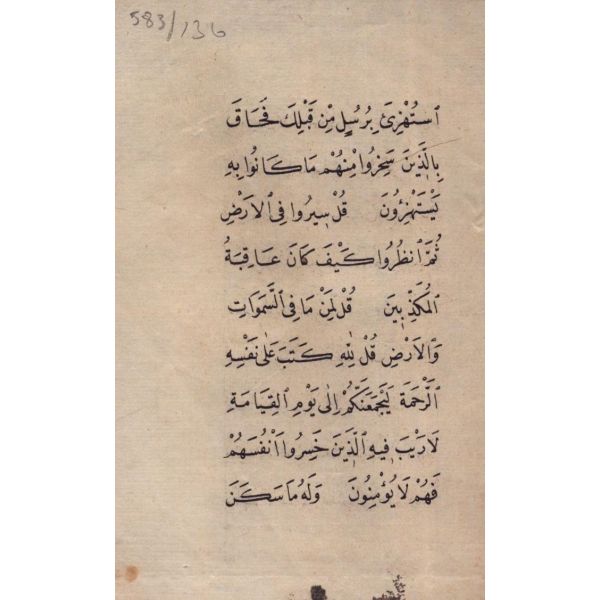 583/136
ٱسْتُهْزِئَ بِرُسُلٍ مِنْ قَبْلِكَ فَحَاقَ
بِالَّذِينَ سَخِرُوا مِنْهُمْ مَا كَانُوا بِهِ
يَسْتَهْزِؤُنَ قُلْ سِيرُوا فِى ٱلْاَرْضِ
ثُمَّ ٱنْظُرُوا كَيْفَ كَانَ عَاقِبَةُ
ٱلْمُكَذِّبِينَ قُلْ لِمَنْ مَا فِى ٱلسَّمَوَاتِ
وَٱلْاَرْضِ قُلْ لِلّٰهِ كَتَبَ عَلَى نَفْسِهِ
ٱلرَّحْمَةَ لَيَجْمَعَنَّكُمْ اِلَى يَوْمِ ٱلْقِيَامَةِ
لَا رَيْبَ فِيهِ ٱلَّذِينَ خَسِرُوا اَنْفُسَهُمْ
فَهُمْ لَا يُؤْمِنُونَ وَلَهُ مَا سَكَنَ